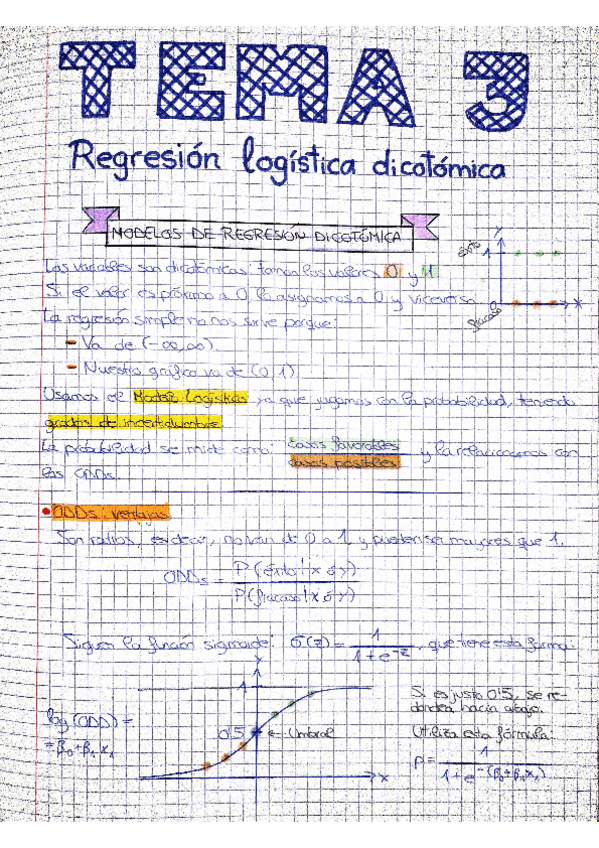 TEMA 3
Regresión logística dicotómica
MODELOS DE REGRESIÓN DICOTÓMICA
Las variables son dicotómicas: toman los valores 0 y 1
Si el valor es próximo a 0, lo asignamos a 0 y viceversa.
La regresión simple no nos sirve porque:
- Va de (-∞,∞)
- Nuestra gráfica va de (0,1)
éxito 1
Y
0
X
fracaso
Usamos el Modelo Logístico, ya que jugamos con la probabilidad, teniendo
grados de incertidumbre
La probabilidad se mide como: casos favorables / casos posibles y la relacionamos con
las ODDs.
• ODDs: ventajas
Son ratios, es decir, no van de 0 a 1, y pueden ser mayores que 1.
ODDs = P(éxito | x ó y) / P(fracaso | x ó y)
Siguen la función sigmoide: σ(z) = 1 / 1+e^-z, que tiene esta forma:
log (ODD) =
= β0+β1 x1
Y
1
0'5
← Umbral
x
Si es justo 0'5, se re-
dondea hacia abajo.
Utiliza esta fórmula:
p = 1 / 1+e^-(β0+β1x1)